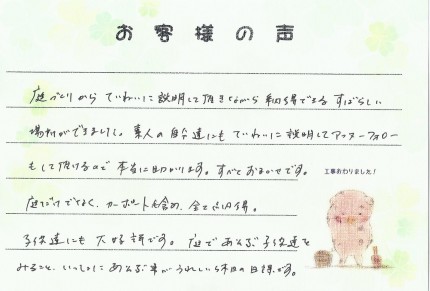 お客様の声
庭づくりからていねいに説明して頂きながら納得できるすばらしい
場所ができました。素人の自分達にもていねいに説明してアフターフォロー
もして頂けるので本当に助かります。すべておまかせです。
工事おわりました!
庭だけでなく、カーポートも含め、全て大満足。
子供達にも大好評です。庭であそぶ子供達を
みること、いっしょにあそぶ事がうれしい毎日の日課です。